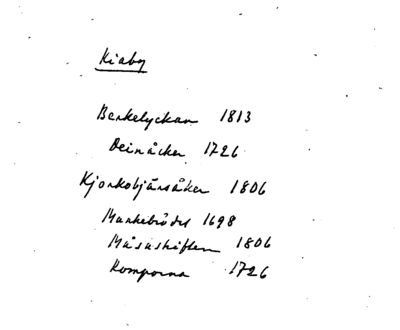 Kiaby
Benkelyckan 1813
Deinåcker 1726
Kjorkobjärsåker 1806
Munkebrödet 1698
Måsaskiften 1806
Romporna 1726